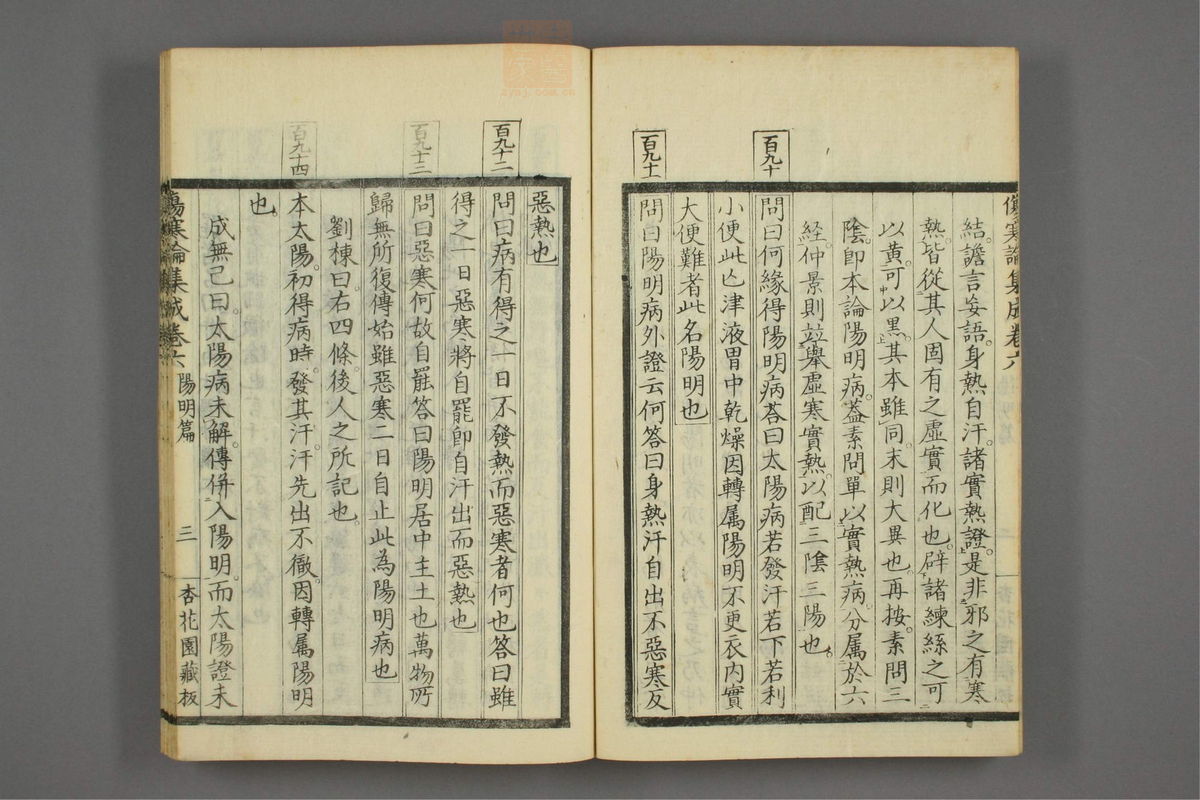 結。譫言妄語。身熱自汗。諸實熱證。是非邪之有寒
熱。皆從其人固有之虛實而化也。辟諸練絲之可
以黃。可以黑。其本雖同。末則大異也。再按。素問三
陰。即本論陽明病。蓋素問單以實熱病。分属於六
経。仲景則竝舉虛寒實熱。以配三陰三陽也。
百九十
問曰何緣得陽明病荅曰太陽病若發汗若下若利
小便此亡津液胃中乾燥因轉属陽明不更衣内實
大便難者此名陽明也
百九十一
問曰陽明病外證云何答曰身熱汗自出不惡寒反
傷寒論集成卷六
惡熱也
百九十二
問曰病有得之一日不發熱而惡寒者何也答曰雖
得之一日惡寒將自罷即自汗出而惡熱也
百九十三
問曰惡寒何故自罷答曰陽明居中主土也萬物所
歸無所復傳始雖惡寒二日自止此為陽明病也
劉棟曰。右四條。後人之所記也。
百九十四
本太陽。初得病時。發其汗。汗先出不徹。因轉属陽明
也。
成無己曰。太陽病未解。傳併入陽明。而太陽證未
傷寒論集成卷六 陽明篇 三 杏花園藏板